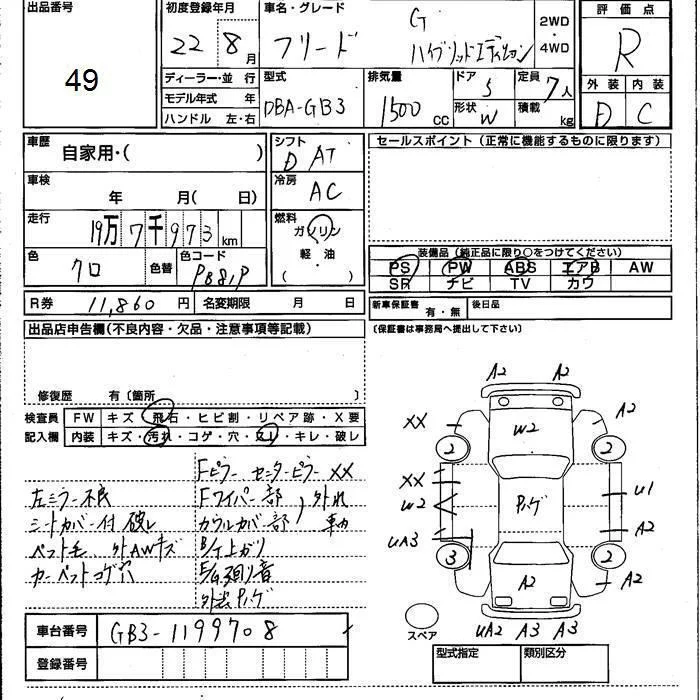 出品番号 初度登録年月 車名・グレード 評価点
49 22年8月 フリード G ハイブリッドエディション 2WD・4WD R
ディーラー・並行 型式 排気量 ドア 5 定員 7人 外装 内装
モデル年式 年 DBA-GB3 1500cc 形状 W 積載 kg D C
ハンドル 左・右
車歴 自家用・( ) シフト D AT セールスポイント(正常に機能するものに限ります)
車検 年 月( 日) 冷房 AC
走行 19万7千973km 燃料 ガソリン
軽・油
( )
色 クロ 色替 色コード PB81P 装備品(純正品に限り○をつけてください)
PS PW ABS エアB AW
SR ナビ TV カワ
R券 11,860円 名変期限 月 日 新車保証書 有・無 後日品
出品店申告欄(不良内容・欠品・注意事項等記載) (保証書は事務局へ提出して下さい)
修復歴 有〔箇所 〕
検査員 FW キズ・飛石・ヒビ割・リペア跡・X要
記入欄 内装 キズ・汚れ・コゲ・穴・スレ・キレ・破レ
Fピラー センターピラー XX
左ミラー不良 Fワイパー部 外れ
シートカバー付 破レ カウルカバー部 車内
ペット毛 外AWキズ 上がり
カーペットコゲ穴 E/G 廻り音
外装 パンゲ
車台番号 GB3-1199708
登録番号
A2 A2
XX A2
W2
2 2
XX
W2 U1
UA3 A2
3 2
A2 A2
スペア UA2 A3 A3
型式指定 類別区分